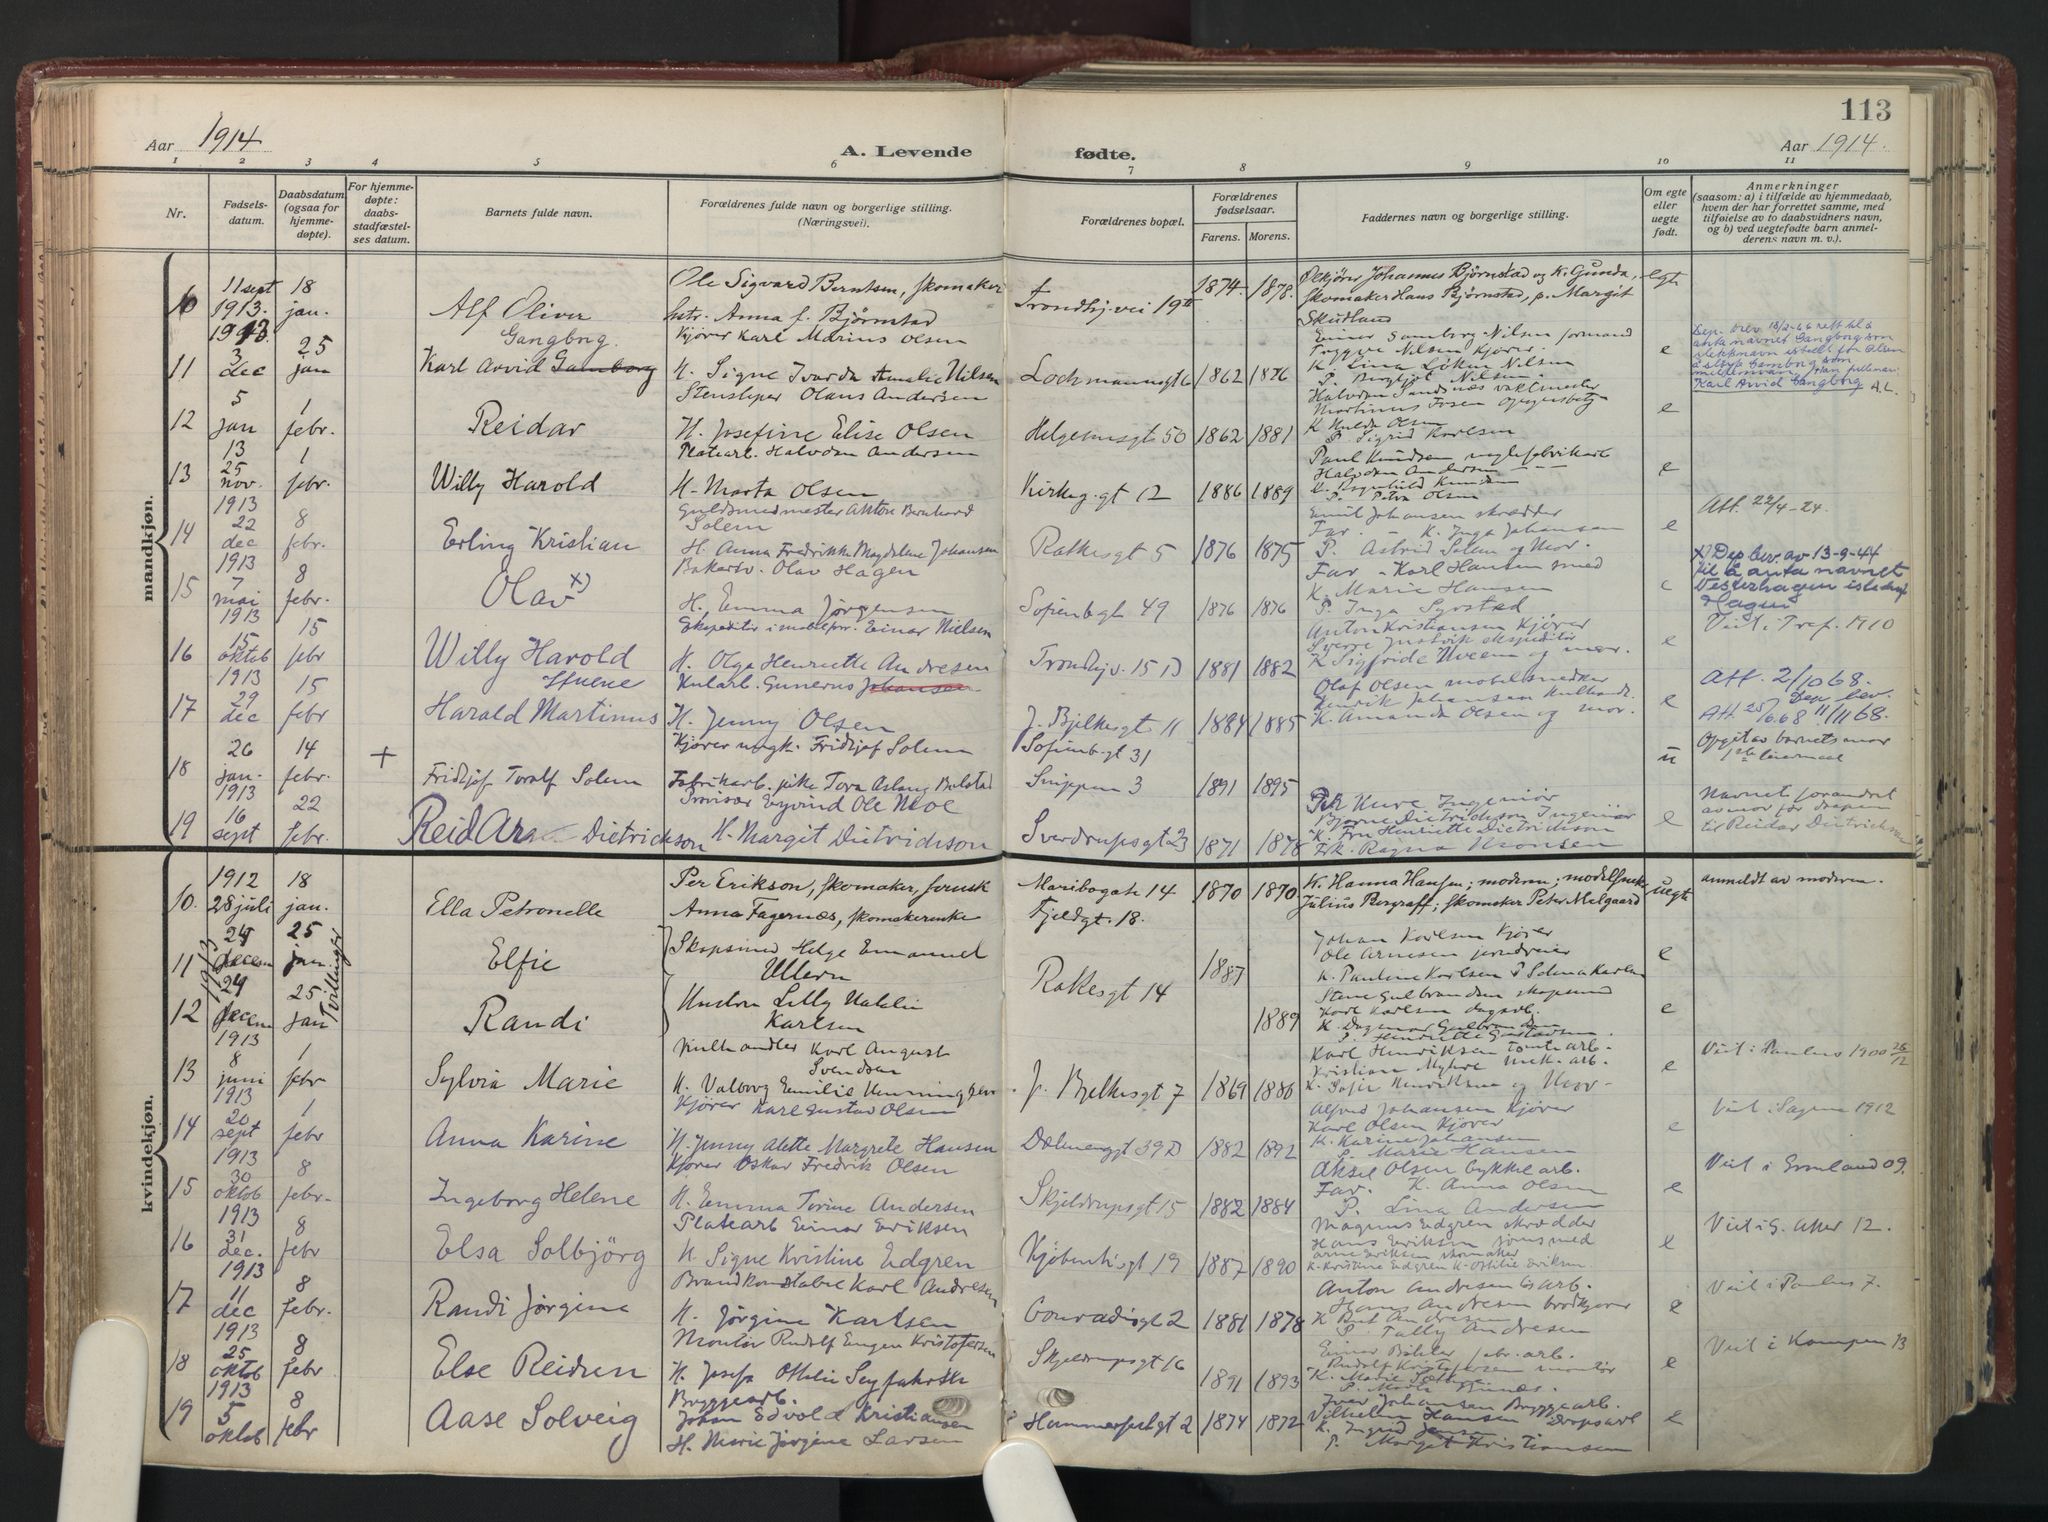 113
Aar 1914
A. Levende fødte.
Aar 1914.
1 2 3 4 5 6 7 8 9 10 11
Nr.
Fødselsdatum.
Daabsdatum (ogsaa for hjemmedøpte).
For hjemmedøpte: daabsstadfæstelses datum.
Barnets fulde navn.
Forældrenes fulde navn og borgerlige stilling.
(Næringsvei).
Forældrenes bopæl.
Forældrenes fødselsaar.
Farens. Morens.
Faddernes navn og borgerlige stilling.
Om egte eller uegte født.
Anmerkninger
(saasom: a) i tilfælde av hjemmedaab,
hvem der har forrettet samme, med
tilføielse av to daabsvidners navn,
og b) ved uegtefødte barn anmelderens navn m. v.).
mandkjøn.
10 11 sept 1913. 18 jan. Alf Oliver
Ole Sigvard Berntsen, skomaker
hstr. Anna f. Bjørnstad
Trondhj.vei 19 1874. 1878.
Johannes Bjørnstad og K. Gunda,
skomaker Hans Bjørnstad, p. Margit
Skutland
egte
11 1913 3 dec 25 jan Karl Arvid Gamborg
Gangborg.
Kjører Karl Marius Olsen
H. Signe Ivarda Amalie Nilsen
Lochmannsgt 6 1862 1876
Trygve Nilsen kjører
K. Lina Løken Nilsen
e
Dep. brev 18/2-66 rett til å
anta navnet Gangborg som
slektsnavn istedf for Olsen
Karl Arvid Gangborg A.L.
12 5 jan 1 febr. Reidar
Stensliper Olaus Andersen
H. Josefine Elise Olsen
Helgesensgt 50 1862 1881
K. Hulda Olsen
P. Sigrid Karlsen
e
13 25 nov. 1913 1 febr. Willy Harold
Platearb. Halvdan Andersen
H. Marta Olsen
Kirkeg.gt 12 1886 1889
Halvdan Andersen
K. Ragnhild Knudsen
P. Petra Olsen
e
14 22 dec 1913 8 febr. Erling Kristian
Guldsmedmester Anton Bernhard
Solem
H. Anna Fredrikke Magdalene Johansen
Ratkesgt 5 1876 1875
Emil Johansen skrædder
Far. - K. Inga Johansen
P. Astrid Solem og Mor.
e
Att. 22/4-24.
15 7 mai 1913 8 febr. Olav x)
Bakersv. Olav Hagen
H. Emma Jørgensen
Sofienbgt 49 1876 1876
Far - Karl Hansen smed
K. Marie Hansen
P. Inga Syrstad
e
x) Dep. brev. av 13-9-44
til å anta navnet
Vesterhagen istedenf
Hagen
16 15 oktob 1913 15 febr Willy Harold
Ekspeditør i mobelforr. Einar Nielsen
H. Olga Henriette Andresen
Trondhjv. 15 D 1881 1882
Anton Kristiansen Kjører
K. Sigfride Uveem og mor.
e
17 29 dec 15 febr Harald Martinus
Stuene
Kularb. Gunerius Johansen
H. Jenny Olsen
J. Bjelkesgt 11 1884 1885
Olaf Olsen mobelsnedker
Henrik Johansen kulhandl.
K. Amanda Olsen og mor.
e
Att. 2/10 68.
Dep. brev.
Att. 25/6.68 11/11 68.
18 26 jan. 14 febr. + Fridtjof Toralf Solem
Kjører ungk. Fridtjof Solem
Fabrikarb. pike Tora Aslaug Bulstad
Sofienbgt 31
Snippen 3 1891 1895
u
Opgit av barnets mor
1ste leiermaal
19 1913 16 sept 22 febr. Reidar Dietrichson
Provisor Eyvind Ole Moe
H. Margit Dietrichson
Sverdrupsgt 23 1871 1878
Bjarne Dietrichson Ingeniør
K. Fru Henriette Dietrichson
Frk. Ragna Monsen
e
Navnet forandret
av mor før daapen
til Reidar Dietrichson
kvindekjøn.
10. 1912 28 juli 18 jan. Ella Petronelle
Per Erikson, skomaker, svensk
Anna Fagernæs, skomakerenke
Maribogate 14
Fjeldgt. 18. 1870 1870.
K. Hanna Hansen; moderen;
Julius Bergraff; skomaker Peter Melgaard
uegte
anmeldt av moderen.
11 24 decem 1913 25 jan. Tvillinger Elfie
12 24 decem 25 jan Randi
Skopsmed Helge Emmanuel
Ullern
Hustru Lilly Natalie
Karlsen
Rakesgt 14 1887 1889
Johan Karlsen Kjører
Ole Arnesen jerndreier
K. Pauline Karlsen P Solma Karlsen
e
K. Dagmar Gulbrandsen
P. Henriette Gustavsen
e
13 1913 8 juni 1 febr Sylvia Marie
Kulhandler Karl August
Svendsen
H. Valborg Emilie Henningsen
J. Bjelkesgt 7 1869 1886
Karl Henriksen Tomtearb.
Kristian Myhre mek. arb.
K. Sofie Henriksen og Mor.
e
Viet i Paulus 1900 26/12
14 1913 20 sept 1 febr Anna Karine
Kjører Karl Gustav Olsen
H. Jenny Alette Margrete Hansen
Dælenenggt 39 D 1882 1892
Alfred Johansen Kjører
Karl Olsen Kjører
K. Karine Johansen
P. Marie Hansen
e
Viet i Sagene 1912
15 1913 30 oktob 8 febr. Ingeborg Helene
Kjører Oskar Fredrik Olsen
H. Emma Torine Andersen
Skjeldrupsgt 15 1882 1884
Aksel Olsen lykkearb.
Far. K. Anna Olsen
P. Lina Andersen
e
Viet i Grønland 09.
16 1913 31 dec. 8 febr Elsa Solbjörg
Platearb Einar Eriksen
H. Signe Kristine Edgren
Kjøbenh.gt 19 1887 1890
Magnus Edgren skrædder
Hans Eriksen jernsmed
Arne Eriksen skomaker
K. Kristine Edgren K. Ottilie Eriksen
e
Viet i G. Aker 12.
17 1913 11 dec 8 febr. Randi Jørgine
Brandkonstabel Karl Andresen
H. Jørgine Karlsen
Conradisgt 2 1881 1878
Anton Andresen isarb.
Hans Andresen brødkjører
P. Tally Andresen
e
Viet i Paulus 7.
18 1913 25 oktob 8 febr Else Reidun
Montør Rudolf Eugen Kristofersen
H. Josefa Ottilie Seyfahrth
Skjeldrupsgt 16 1891 1893
Rudolf Kristofersen montør
e
Viet i Kampen 13
19 1913 5 oktob 8 febr Aase Solveig
Byggearb.
Johan Edvold Kristiansen
H. Marie Jørgine Larsen
Hammerfestgt 2 1874 1872
Iver Johansen Byggearb.
Vilhelm Hansen Dropsarb
K. Ingrid Jensen
P. Margit Kristiansen
e